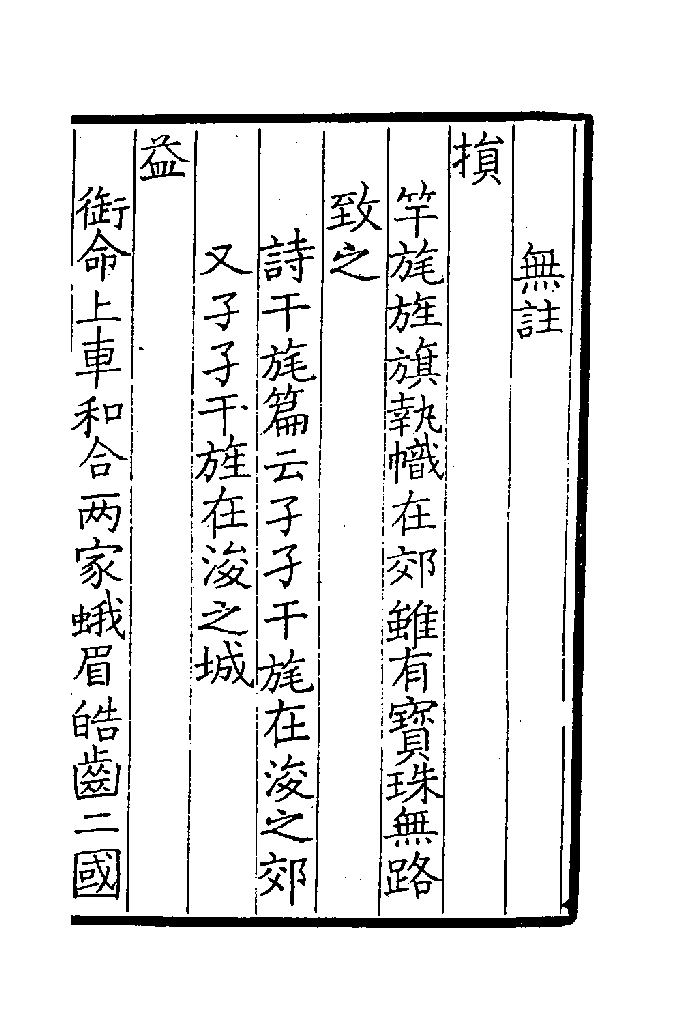 無註
損
竿旄旌旗執幟在郊雖有寶珠無路
致之
詩干旄篇云孑孑干旄在浚之郊
又孑孑干旌在浚之城
益
銜命上車和合两家蛾眉皓齒二國